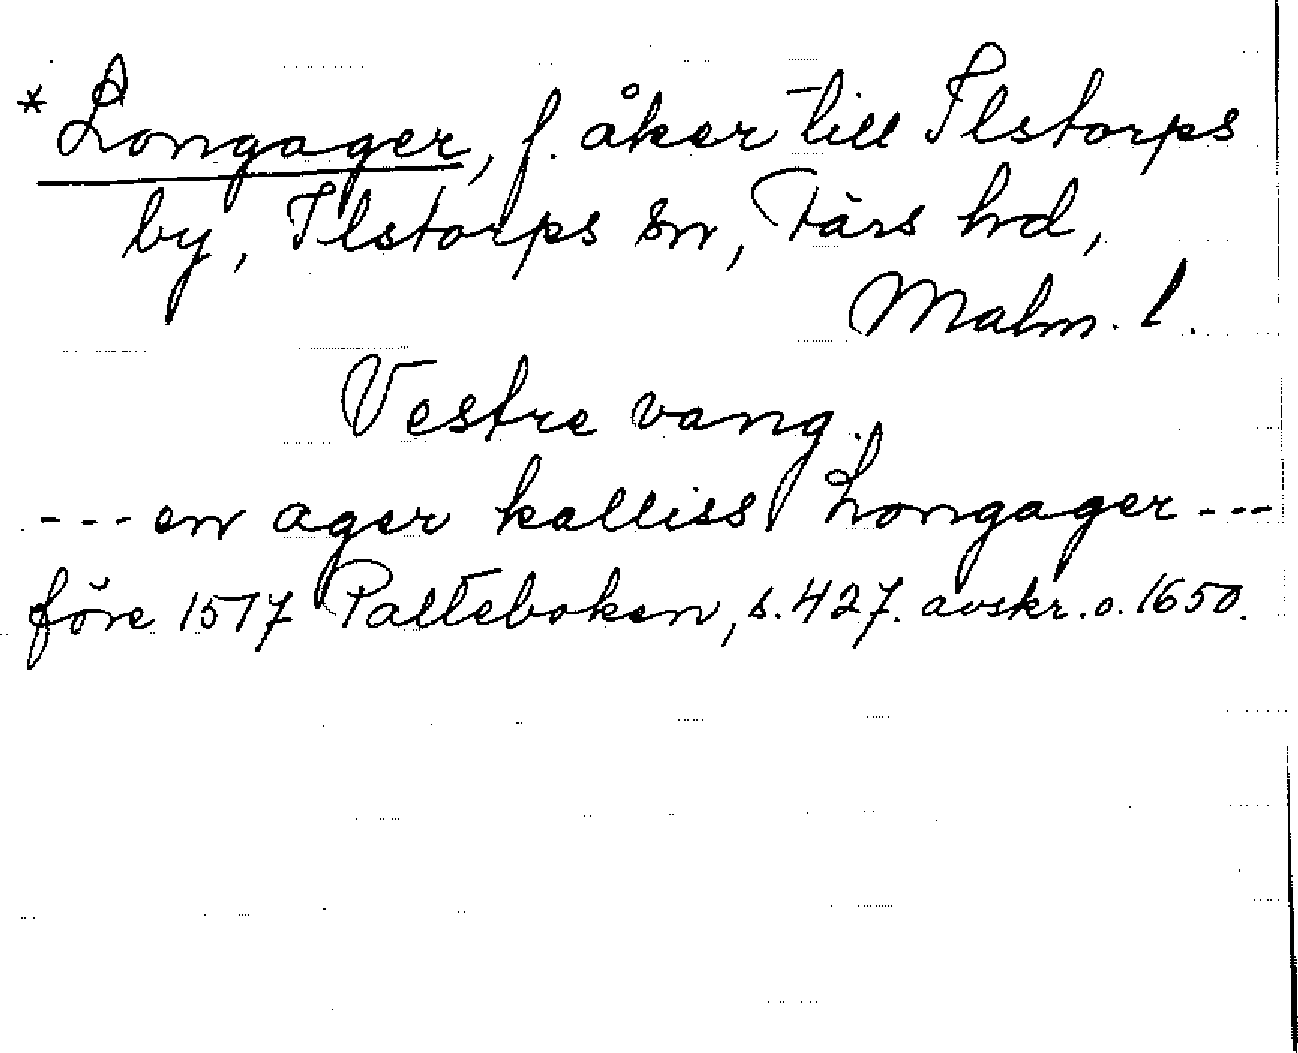 * Longager, f. åker till Ilstorps
by, Ilstorps sn, Färs hd,
Malm. l.
Vestre vang.
--- en ager kalliss Longager ---
före 1517 Palteboken, s. 427. avskr. o. 1650.